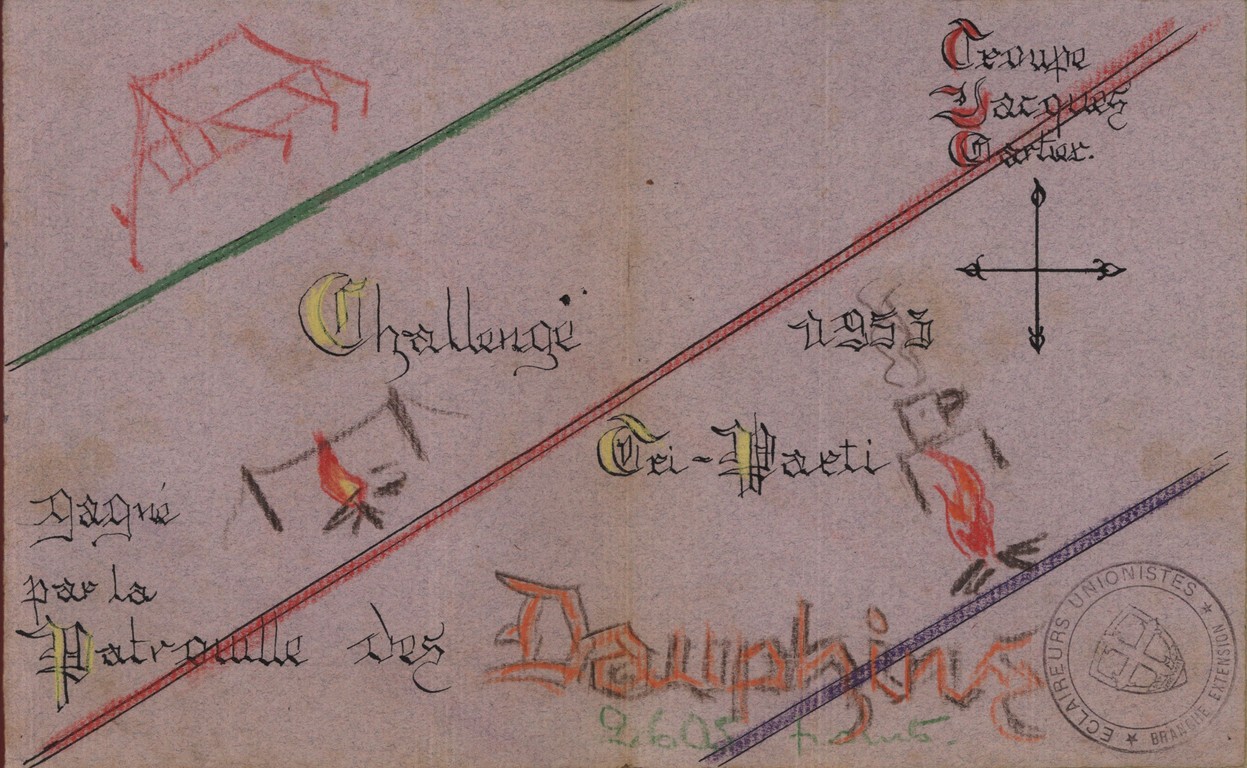 Troupe
Jacques
Cartier.
Challenge
1953
Tri-Parti
gagné
par la
Patrouille des Dauphins
2605 points.
ECLAIREURS UNIONISTES ★ BRANCHE EXTENSION ★